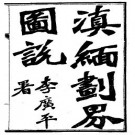 滇緬劃界
圖說
李廣平
署